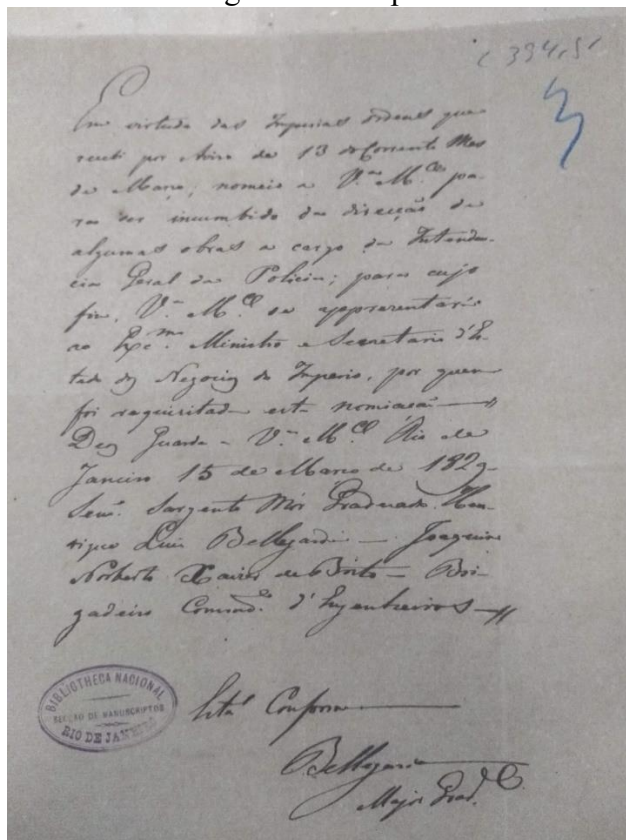 394,51
Em virtude das Imperiaes Ordens que
recebi por Aviso de 13 do Corrente Mes
de Março, nomeio a V.ª M.ce pa-
ra ser incumbido da direcção de
algumas obras a cargo da Intenden-
cia Geral da Policia; para cujo
fim, V.ª M.ce se appresentará
ao Exc.mo Ministro e Secretario d'Es-
tado dos Negocios do Imperio, por quem
foi requisitada esta nomiação
Deos Guarde a V.ª M.ce Rio de
Janeiro 15 de Março de 1829
Senr. Sargento Mór Graduado Hen-
rique Luis Bellegarde — Joaquim
Norberto Xavier de Brito — Bri-
gadeiro Comm.de d'Engenheiros
BIBLIOTHECA NACIONAL
SECÇÃO DE MANUSCRIPTOS
RIO DE JANEIRO
Está Conforme
Bellegarde
Major Grad.